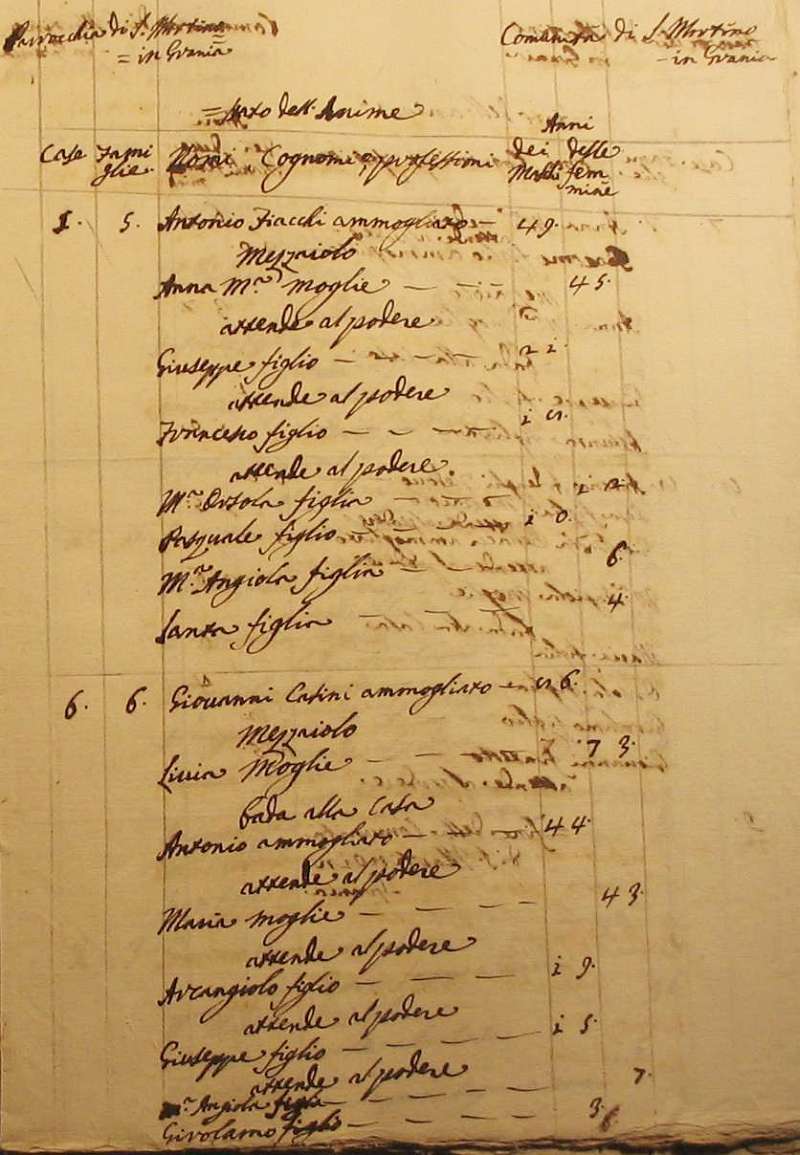 Parrocchia di S. Martino
= in Gvania
Comunità di S. Martino
- in Gvania
= stato dell'Anime
Anni
Case Fami dei delle
glie. Nomi Cognomi, e professioni Maschi fem
mine
1. 5. Antonio Fiacchi ammogliato - 49.
Mezzaiolo
Anna M.ª moglie - 45.
attende al podere
Giuseppe figlio - 22.
attende al podere
Francesco figlio - - - i
attende al podere.
M.ª Orsola figlia - i2.
Pasquale figlio - i0.
M.ª Angiola figlia - 6.
Santa figlia 4.
6. 6. Giovanni Casini ammogliato - 6.
Mezzaiolo
Livia Moglie - - - 73.
bada alla Casa
Antonio ammogliato - 44.
attende al podere
Maria moglie - - - - 43.
attende al podere
Arcangiolo figlio - - - - i9.
attende al podere
Giuseppe figlio - - - - i5.
attende al podere
M.ª Angiola figlia - - - - 7.
Girolamo figlio - - - - 3.